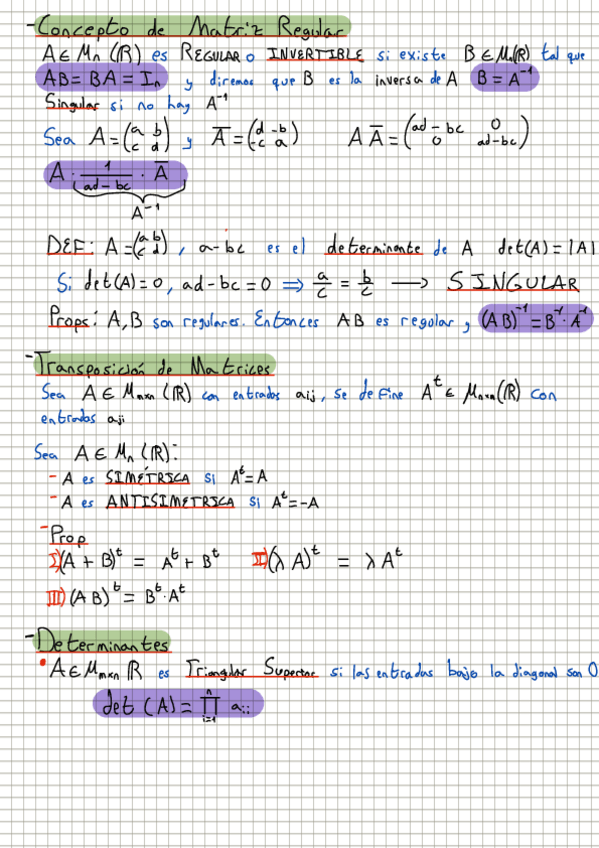 - Concepto de Matriz Regular
A ∈ Mn (ℝ) es REGULAR o INVERTIBLE si existe B ∈ Mn(ℝ) tal que
AB = BA = In y diremos que B es la inversa de A B = A⁻¹
Singular si no hay A⁻¹
Sea A = (a b / c d) y Ā = (d -b / -c a) A Ā = (ad - bc 0 / 0 ad - bc)
A · 1/(ad - bc) · Ā
A⁻¹
DEF: A = (a b / c d), a - bc es el determinante de A det(A) = |A|
Si det(A) = 0, ad - bc = 0 ⇒ a/c = b/c → SINGULAR
Props: A, B son regulares. Entonces AB es regular y (AB)⁻¹ = B⁻¹ · A⁻¹
- Transposición de Matrices
Sea A ∈ Mmxn (ℝ) con entradas aij, se define Aᵗ ∈ Mnxn(ℝ) con
entradas aji
Sea A ∈ Mn (ℝ):
- A es SIMÉTRICA si Aᵗ = A
- A es ANTISIMETRICA si Aᵗ = -A
- Prop
I) (A + B)ᵗ = Aᵗ + Bᵗ II) (λ A)ᵗ = λ Aᵗ
III) (AB)ᵗ = Bᵗ · Aᵗ
- Determinantes
• A ∈ Mmxn ℝ es Triangular Superior si las entradas bajo la diagonal son 0
det (A) = ∏ⁿᵢ₌₁ aii